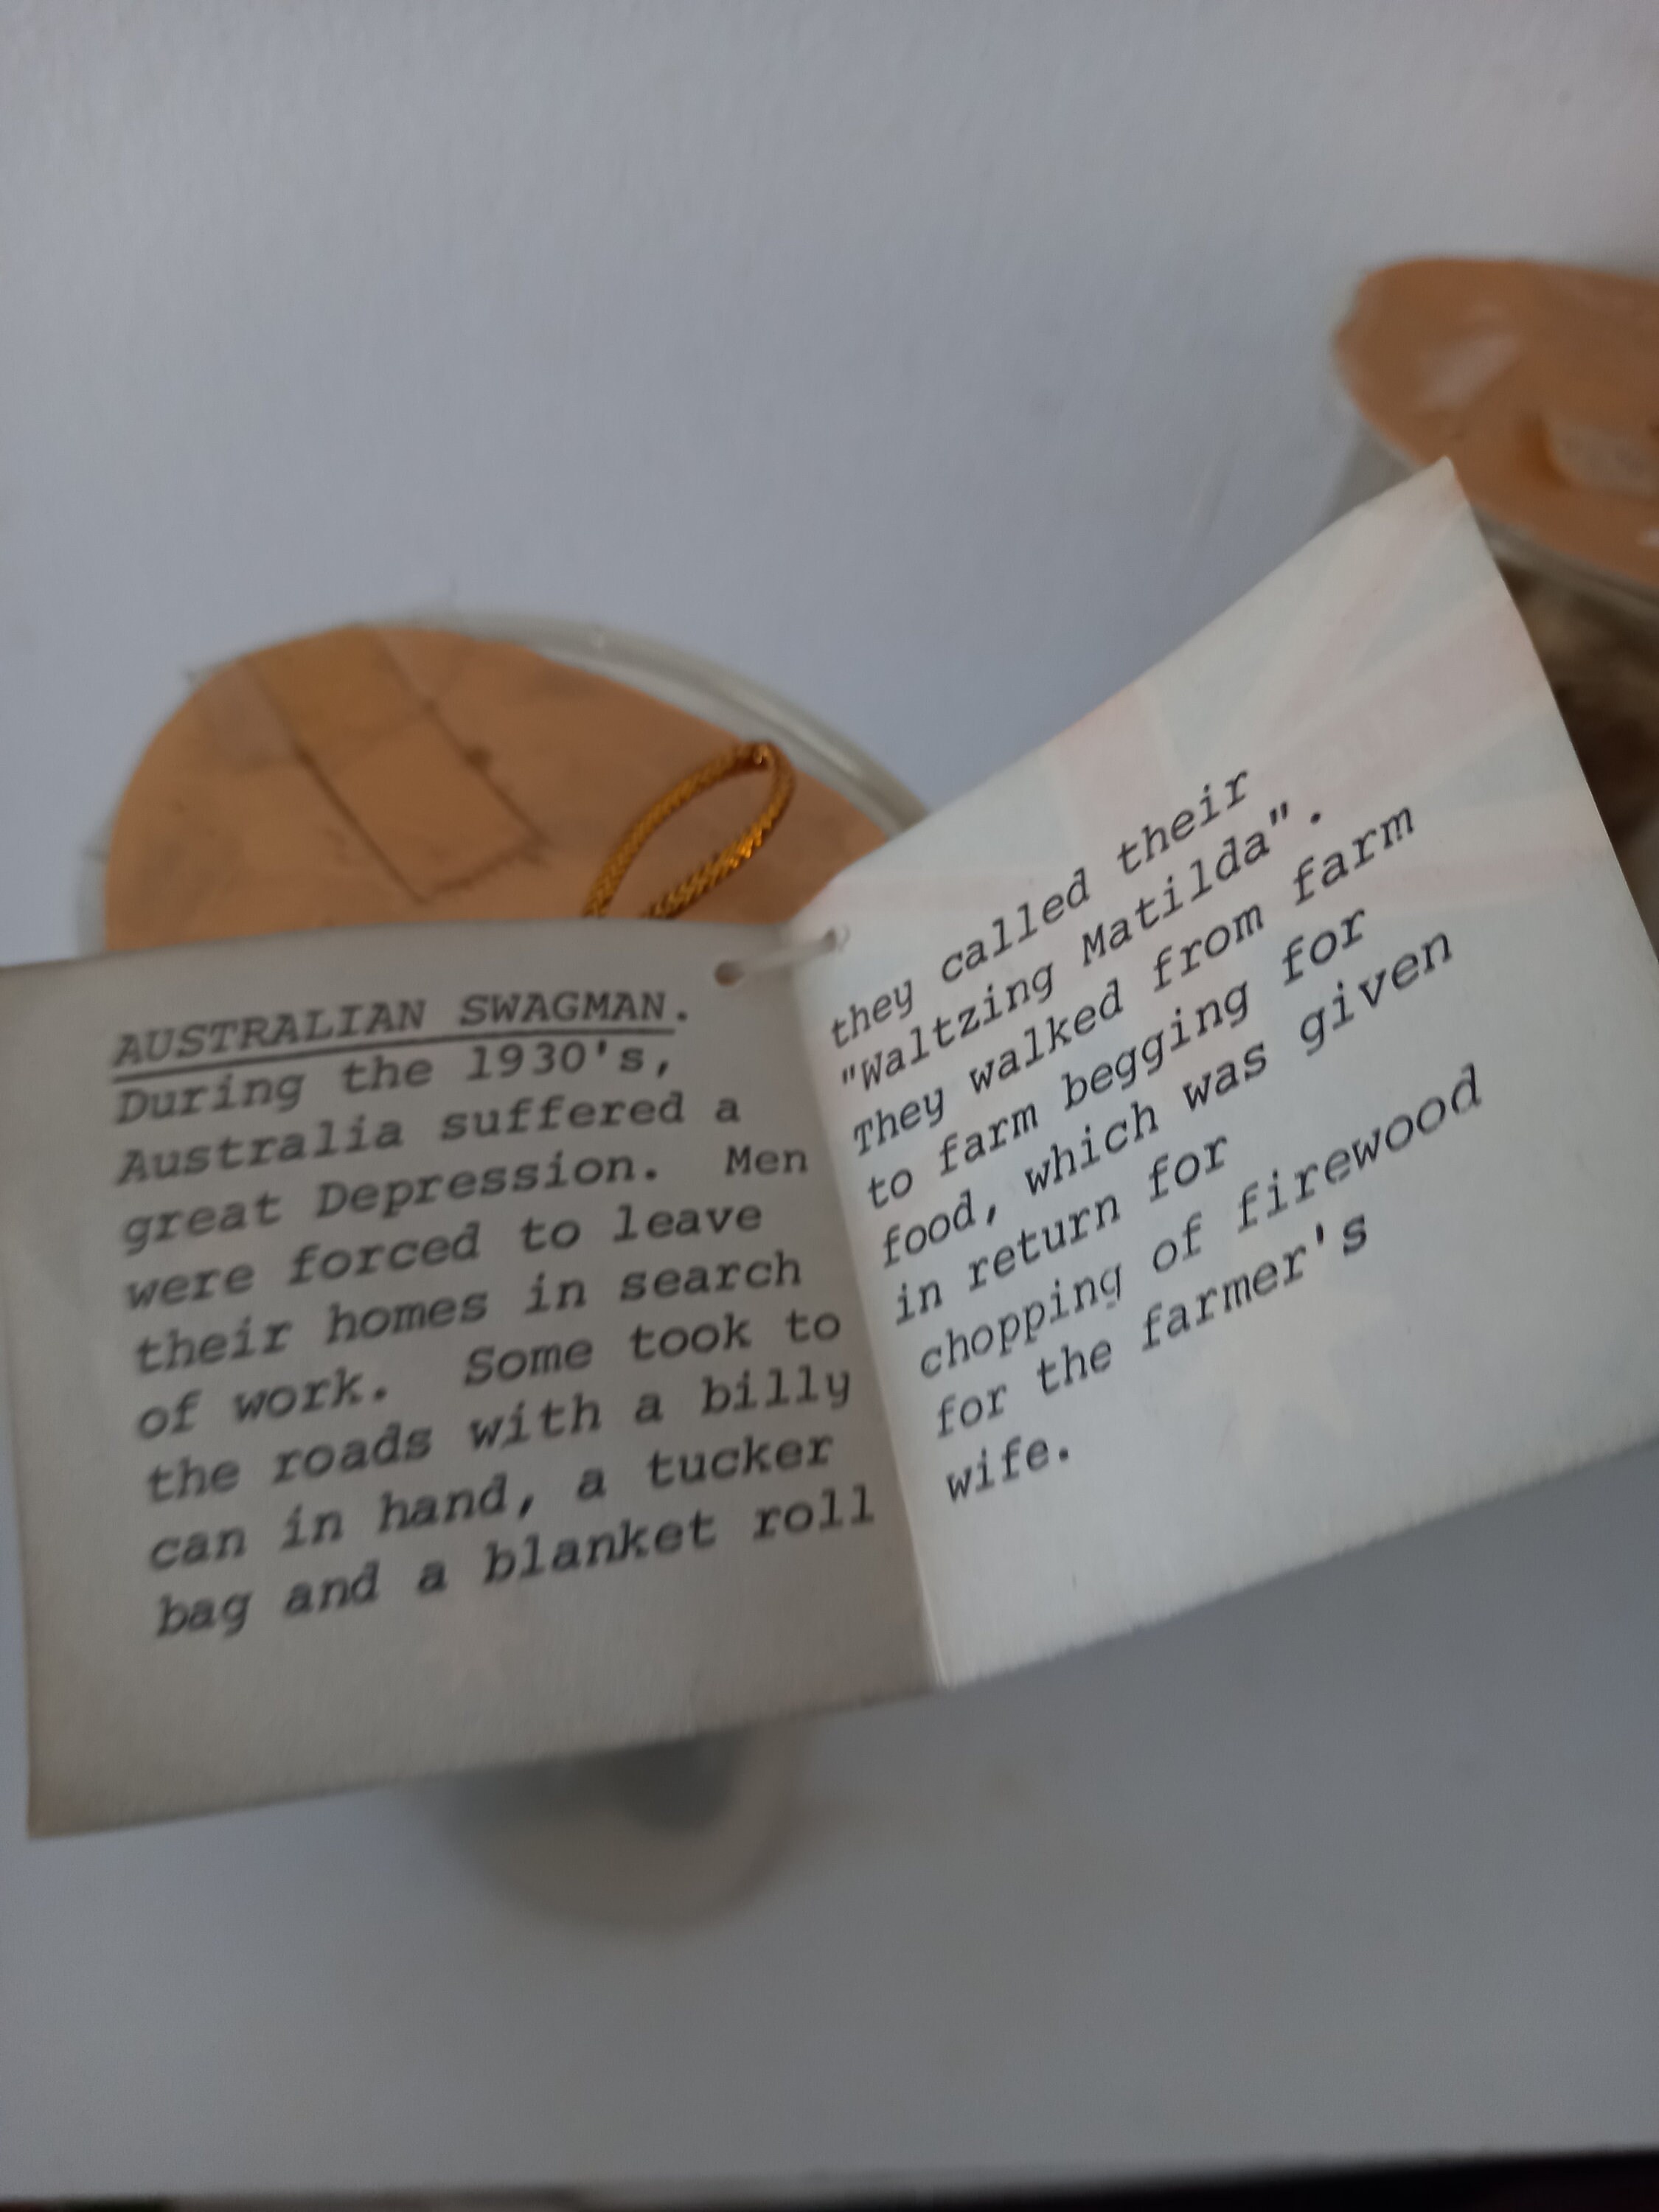 AUSTRALIAN SWAGMAN.
During the 1930's,
Australia suffered a
great Depression. Men
were forced to leave
their homes in search
of work. Some took to
the roads with a billy
can in hand, a tucker
bag and a blanket roll
they called their
"Waltzing Matilda".
They walked from farm
to farm begging for
food, which was given
in return for
chopping of firewood
for the farmer's
wife.